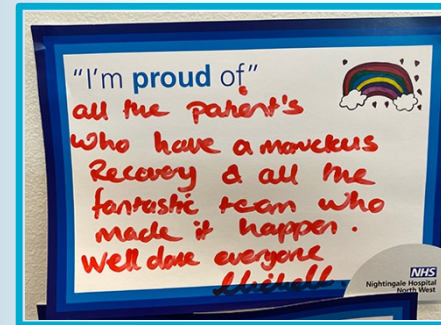 "I'm proud of"
all the patient's
who have a marvelus
Recovery & all the
fantastic team who
made it happen.
Well done everyone
Michell.
NHS
Nightingale Hospital
North West